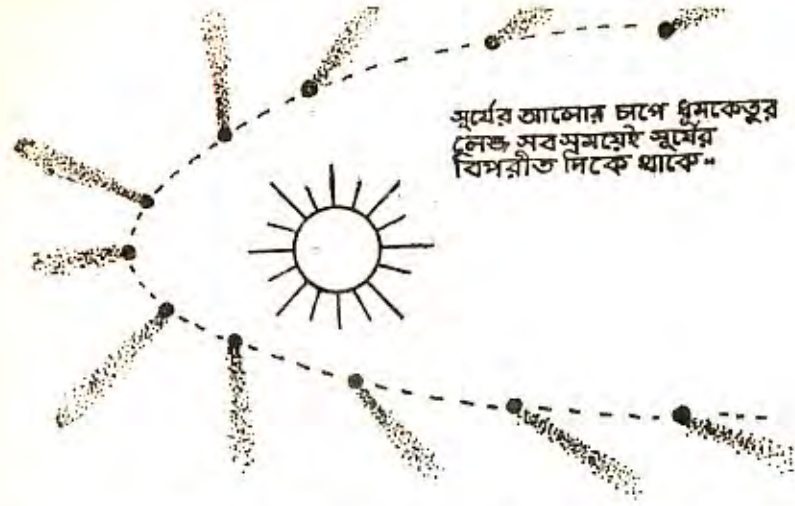 সূর্যের আলোর চাপে ধূমকেতুর
লেজ সব সময়েই সূর্যের
বিপরীত দিকে থাকে৷